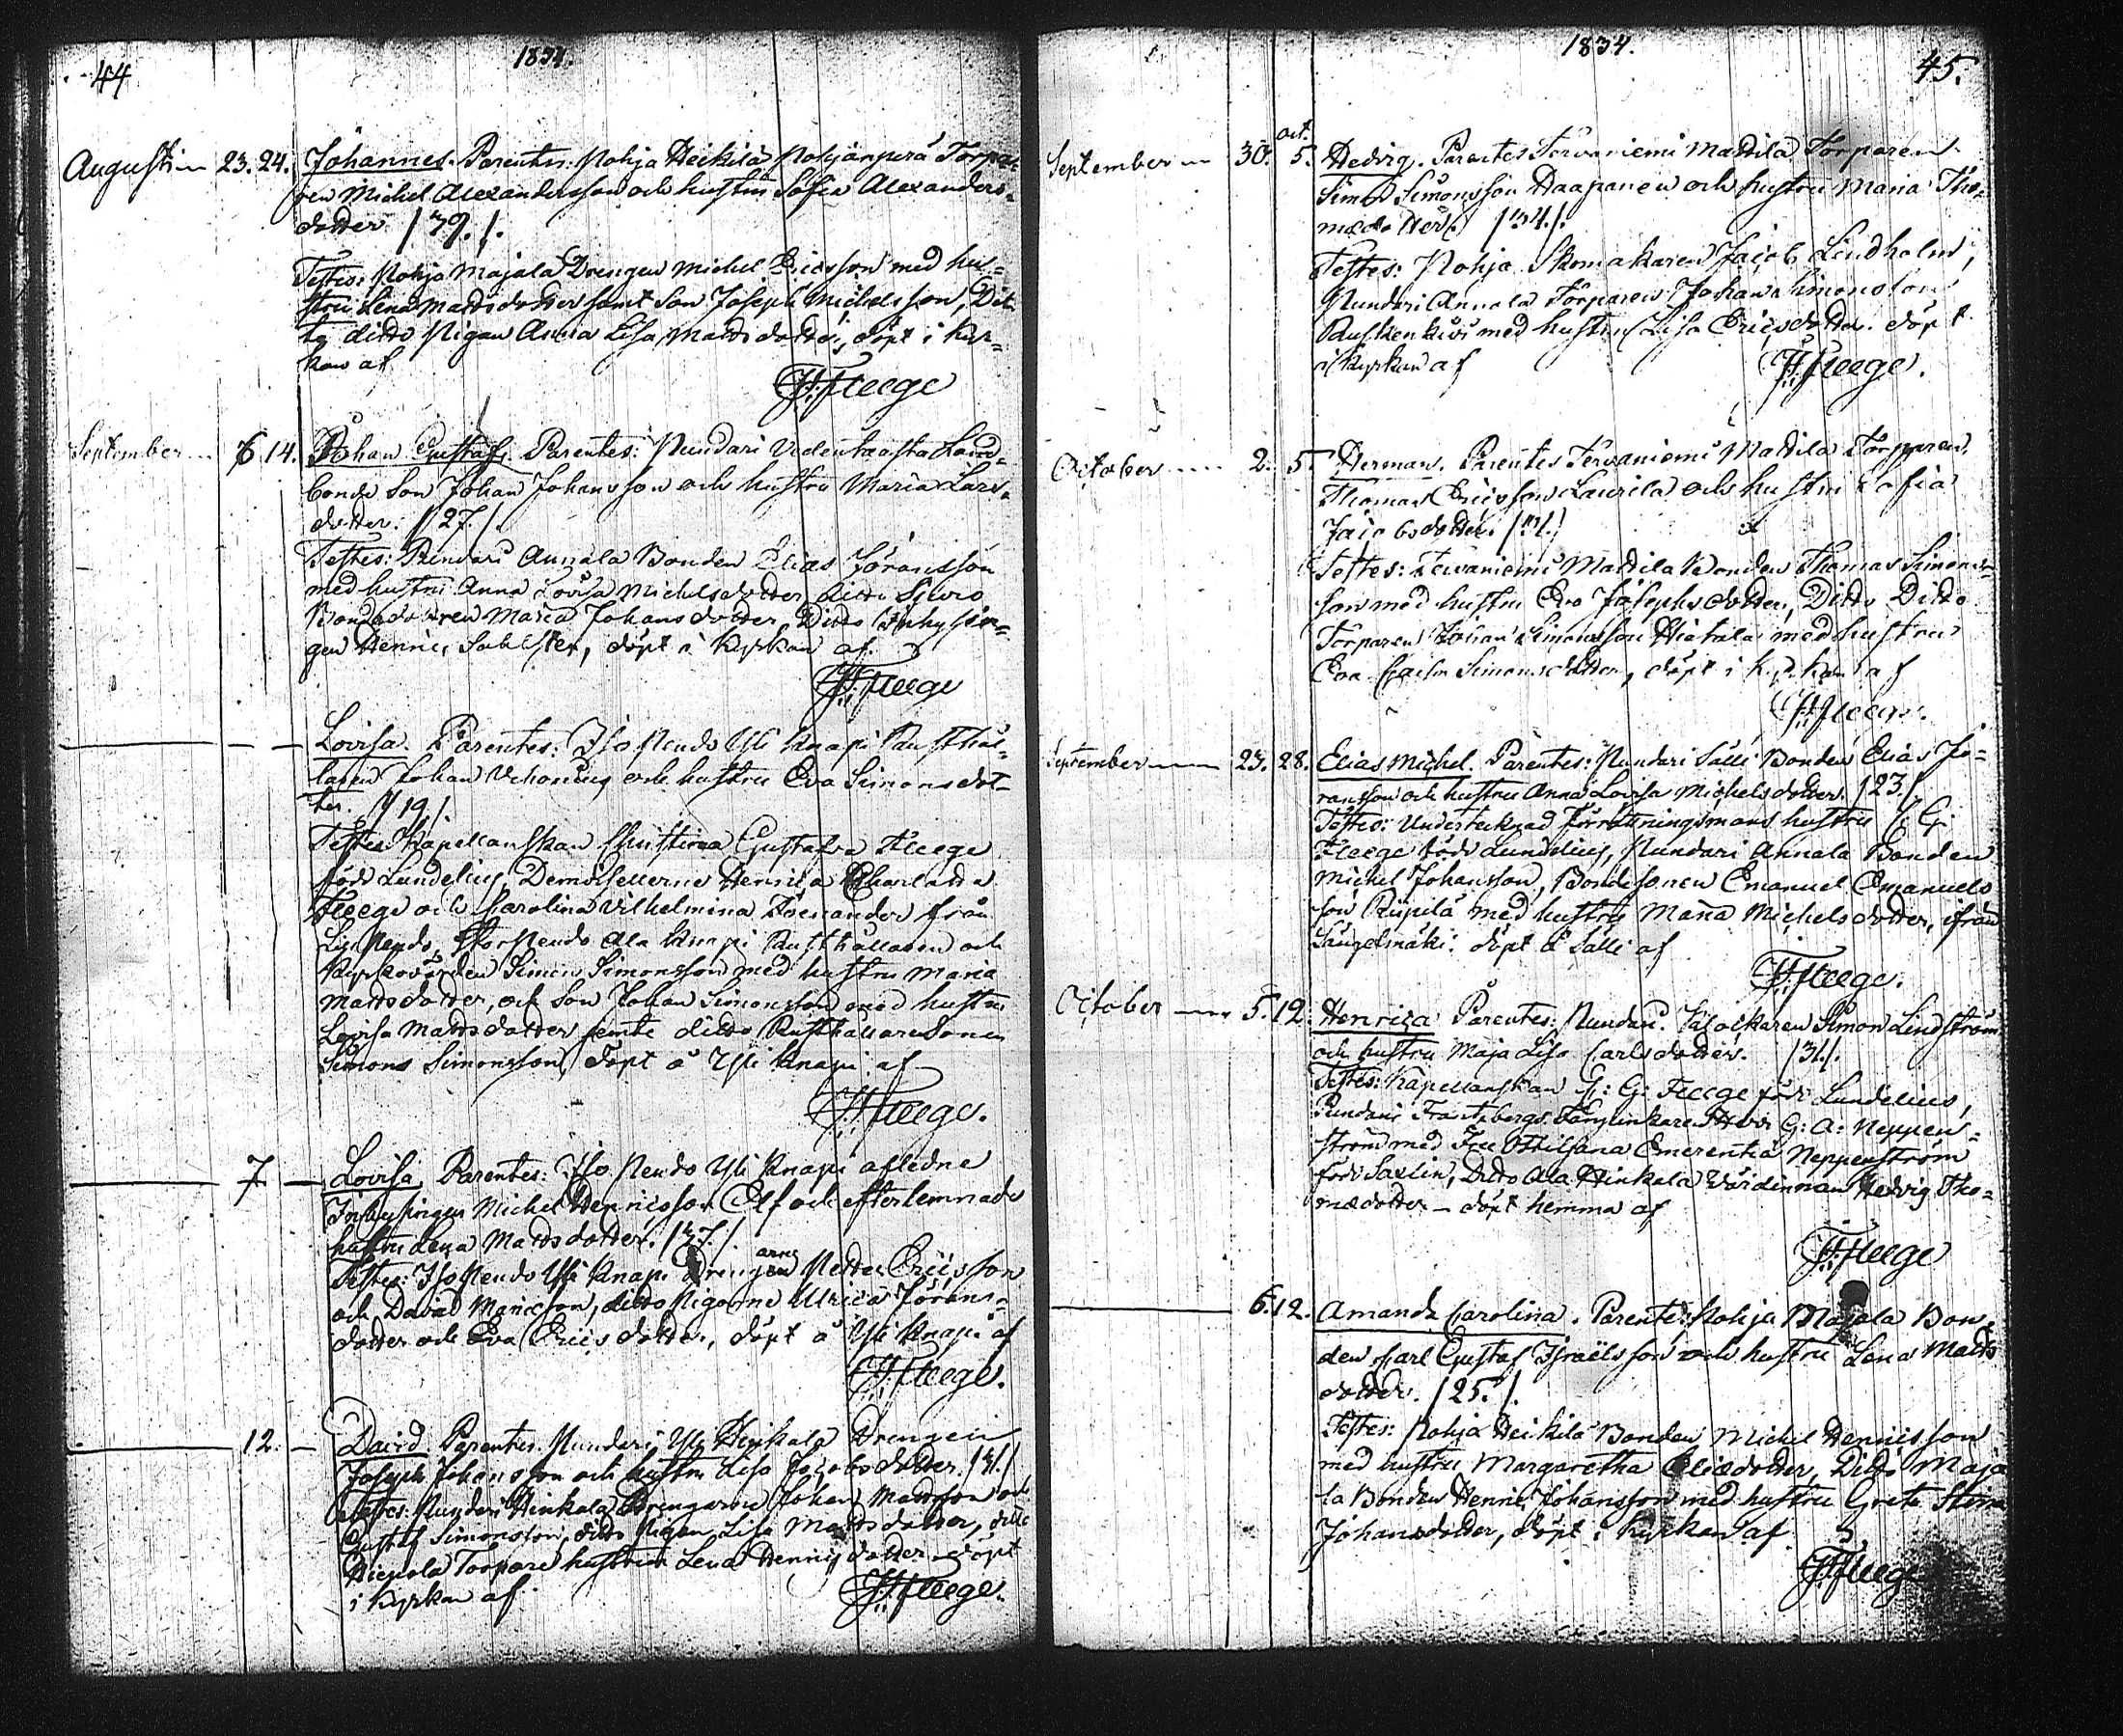 44
1834.
Augusti 23. 24. Johannes. Parentes: Pohja Heikilä Pohjanperä Torpa-
ren Michel Alexandersson och hustru Sofia Alexanders-
dotter /39./.
Testes: Pohja Majala Drengen Michel Ericsson med hu-
stru Lena Mattsdotter samt Son Joseph Michelsson, Dit-
to ditto Pigan Anna Lisa Mattsdotter, döpt i Kyr-
kan af
H: Fleege
September 6 14. Johan Gustaf. Parentes: Pundari Land-
bonde Son Johan Johansson och hustru Maria Lars-
dotter. /27./
Testes: Pundari Annala Bonden Elias Jöransson
med hustru Anna Lovisa Michelsdotter, ditto
Bondedottren Maria Johansdotter, Ditto Inhysin-
gen Henric, döpt i Kyrkan af
H: Fleege
Lovisa. Parentes: Iso Pendo Yli Knapi Rusthål-
laren Johan och hustru Eva Simonsdot-
ter. /19/.
Testes Kapellanskan Christina Gustafva Fleege
född Lundelius, Demoisellerne Henrica Charlotta
Fleege och Carolina Vilhelmina från
Ala Knapi Rusthållaren och
Kyrkovärden Simon Simonsson med hustru Maria
Mattsdotter, och Son Johan Simonsson med hustru
Lovisa Mattsdotter jemte ditto Rusthållare Sonen
Simons Simonsson, döpt å Yli Knapi af
H: Fleege.
7 Lovisa, Parentes: Iso Pendo Yli Knapi afledne
Inhysingen Michel Henricsson Elf och efterlemnade
hustru Lena Mattsdotter. /37./.
arne
Testes: Iso Pendo Yli Knapi Drengen Petter Ericsson
och David, ditto Pigorne Ulrica Jörans-
dotter och Eva Ericsdotter, döpt å Yli Knapi af
H: Fleege.
12. David. Parentes. Pundari Yli Hinkala Drengen
Joseph Johansson och hustru Lisa Jacobsdotter. /31./
Testes: Pundari Hinkala Drengarne Johan Mattsson och
Gustaf Simonsson, ditto Pigan Lisa Mattsdotter, ditto
Torpare hustrun Lena Henricsdotter döpt
i Kyrkan af
H: Fleege.
1834.
45.
oct.
September 30. 5. Hedvig. Parentes Tervaniemi Mattila Torparen
Simon Simonsson Haapanen och hustru Maria Tho-
mædotter. /34./.
Testes: Pohja Skomakaren Jacob Lindholm,
Pundari Annala Torparen Johan Simonsson
med hustru Lisa Ericsdotter. döpt
i Kyrkan af
H: Fleege.
October 2. 5. Herman. Parentes Tervaniemi Mattila Torparen
Thomas Ericsson Laurila och hustru Sofia
Jacobsdotter.
Testes: Tervaniemi Mattila Bonden Thomas Simons-
son med hustru Eva Josephsdotter, Ditto Ditto
Torparen Johan Simonsson Hiatala med hustru
Eva Caisa Simonsdotter, döpt i kyrkan af
H: Fleege.
September 23. 28. Elias Michel. Parentes: Pundari Salli Bonden Elias Jö-
ransson och hustru Anna Lovisa Michelsdotter. /23./
Testes: Undertecknad Förrättningsmans hustru C: G:
Fleege född Lundelius, Pundari Annala Bonden
Michel Johansson, Bondesonen Emanuel Emanuels
son med hustru Maria Michelsdotter, ifrån
döpt å Salli af
H: Fleege.
October 5. 12. Henrica Parentes: Pundari Simon Lindström
och hustru Maja Lisa Carlsdotter. /31./.
Testes: Kapellanskan C: G: Fleege född Lundelius,
Pundari Herr G: A: Neppen-
ström med Fru Ottiliana Emerentia Neppenström
född, Ditto Ala Hinkala Värdinnan Hedvig Tho-
mædotter – döpt hemma af
H: Fleege
6. 12. Amanda Carolina. Parentes: Pohja Majala Bon-
den Carl Gustaf Israëlsson och hustru Lena Matts
dotter. /25./.
Testes: Pohja Heikilä Bonden Michel Henricsson
med hustru Margaretha Eliædotter, Ditto Maja
la Bonden Henric Johansson med hustru Greta Stina
Johansdotter, döpt i Kyrkan af
H: Fleege